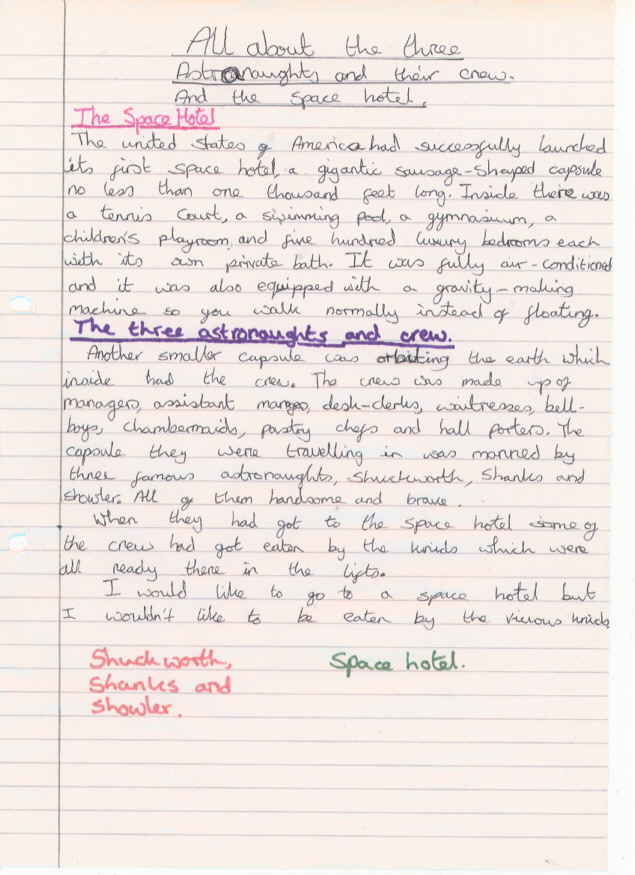 All about the three
Astronaughts and their crew.
And the space hotel.
The Space Hotel
The united states of America had successfully launched
its first space hotel, a gigantic sausage-shaped capsule
no less than one thousand feet long. Inside there was
a tennis court, a swimming pool, a gymnasium, a
children's playroom, and five hundred luxury bedrooms each
with its own private bath. It was fully air-conditioned
and it was also equipped with a gravity-making
machine so you walk normally instead of floating.
The three astronaughts and crew.
Another smaller capsule was orbiting the earth which
inside had the crew. The crew was made up of
managers, assistant desk-clerks, waitresses, bell-
boys, chambermaids, pastry chefs and hall porters. The
capsule they were travelling in was manned by
three famous astronaughts, Shuckworth, Shanks and
Showler. All of them handsome and brave.
When they had got to the space hotel some of
the crew had got eaten by the knids which were
all ready there in the lifts.
I would like to go to a space hotel but
I wouldn't like to be eaten by the vicious knids
Shuckworth,
Shanks and
Showler.
Space hotel.